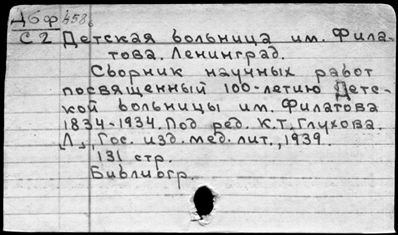 Дбф 458
С2 Детская больница им. Фила-
това. Ленинград.
Сборник научных работ
посвященный 100-летию Детс-
кой больницы им. Филатова
1834-1934. Под ред. К.Т. Глухова.
Л., Гос. изд. мед. лит., 1939.
131 стр.
Библиогр.